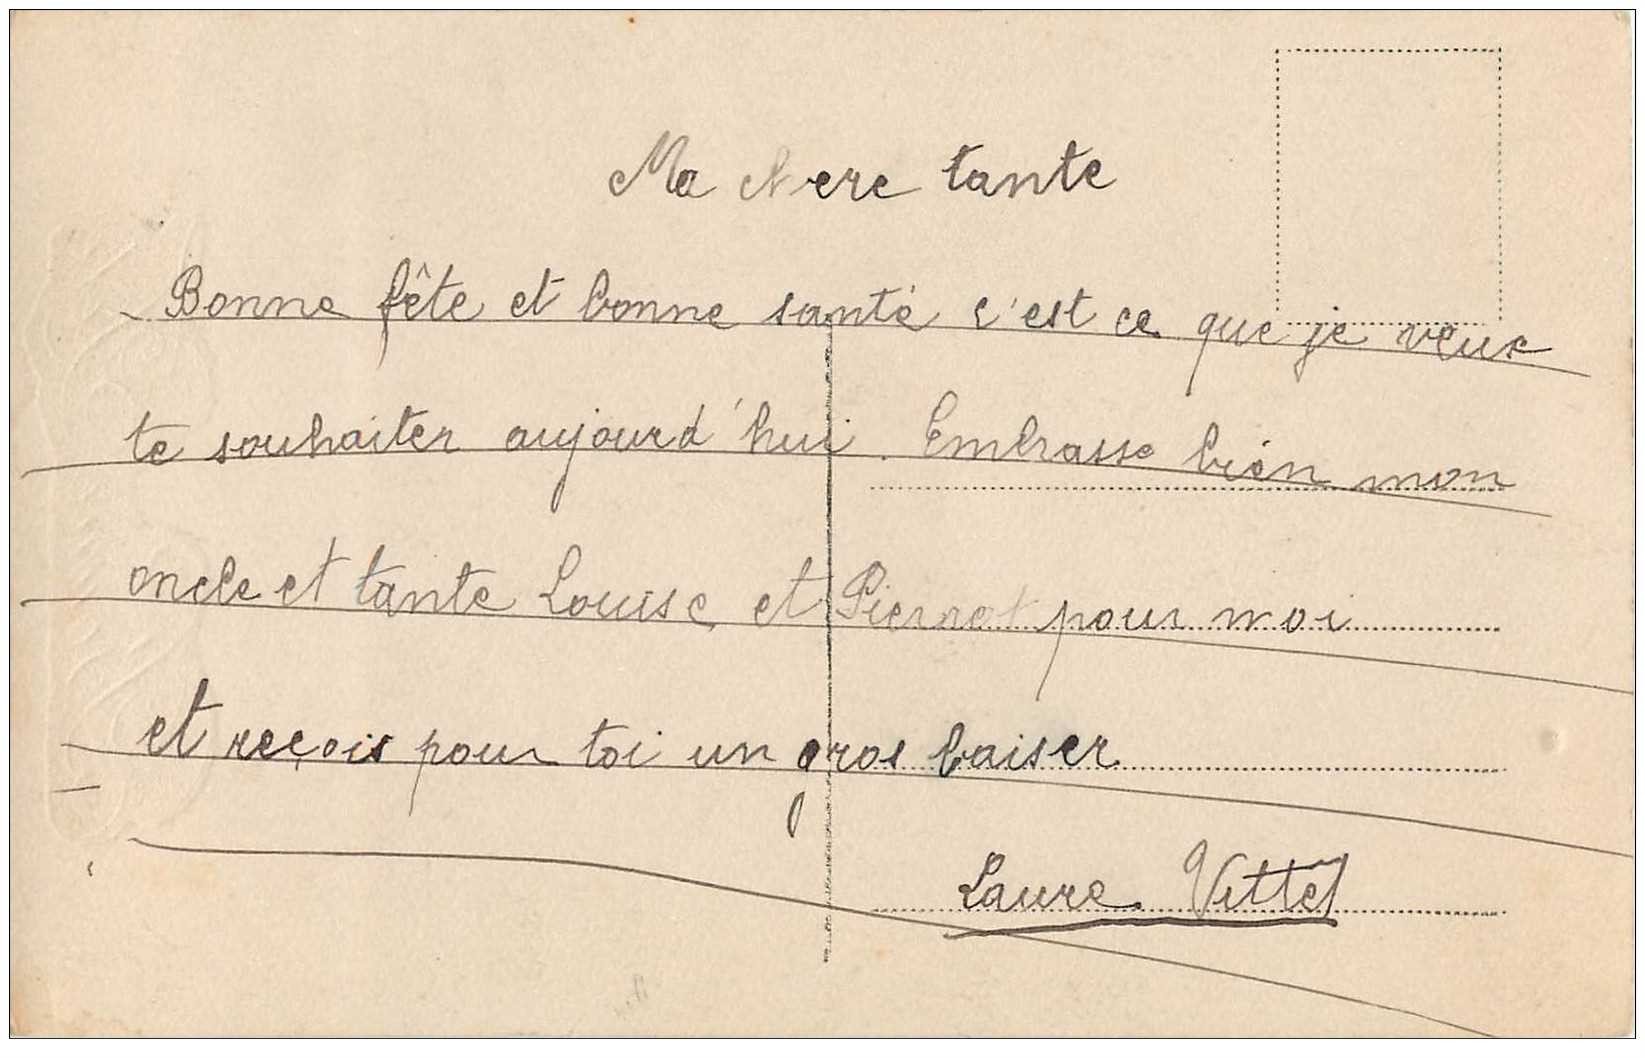 Ma chere tante
Bonne fête et bonne santé c'est ce que je veux
te souhaiter aujourd'hui. Embrasse bien mon
oncle et tante Louise et Pierrot pour moi
et reçois pour toi un gros baiser
Laure Vittel